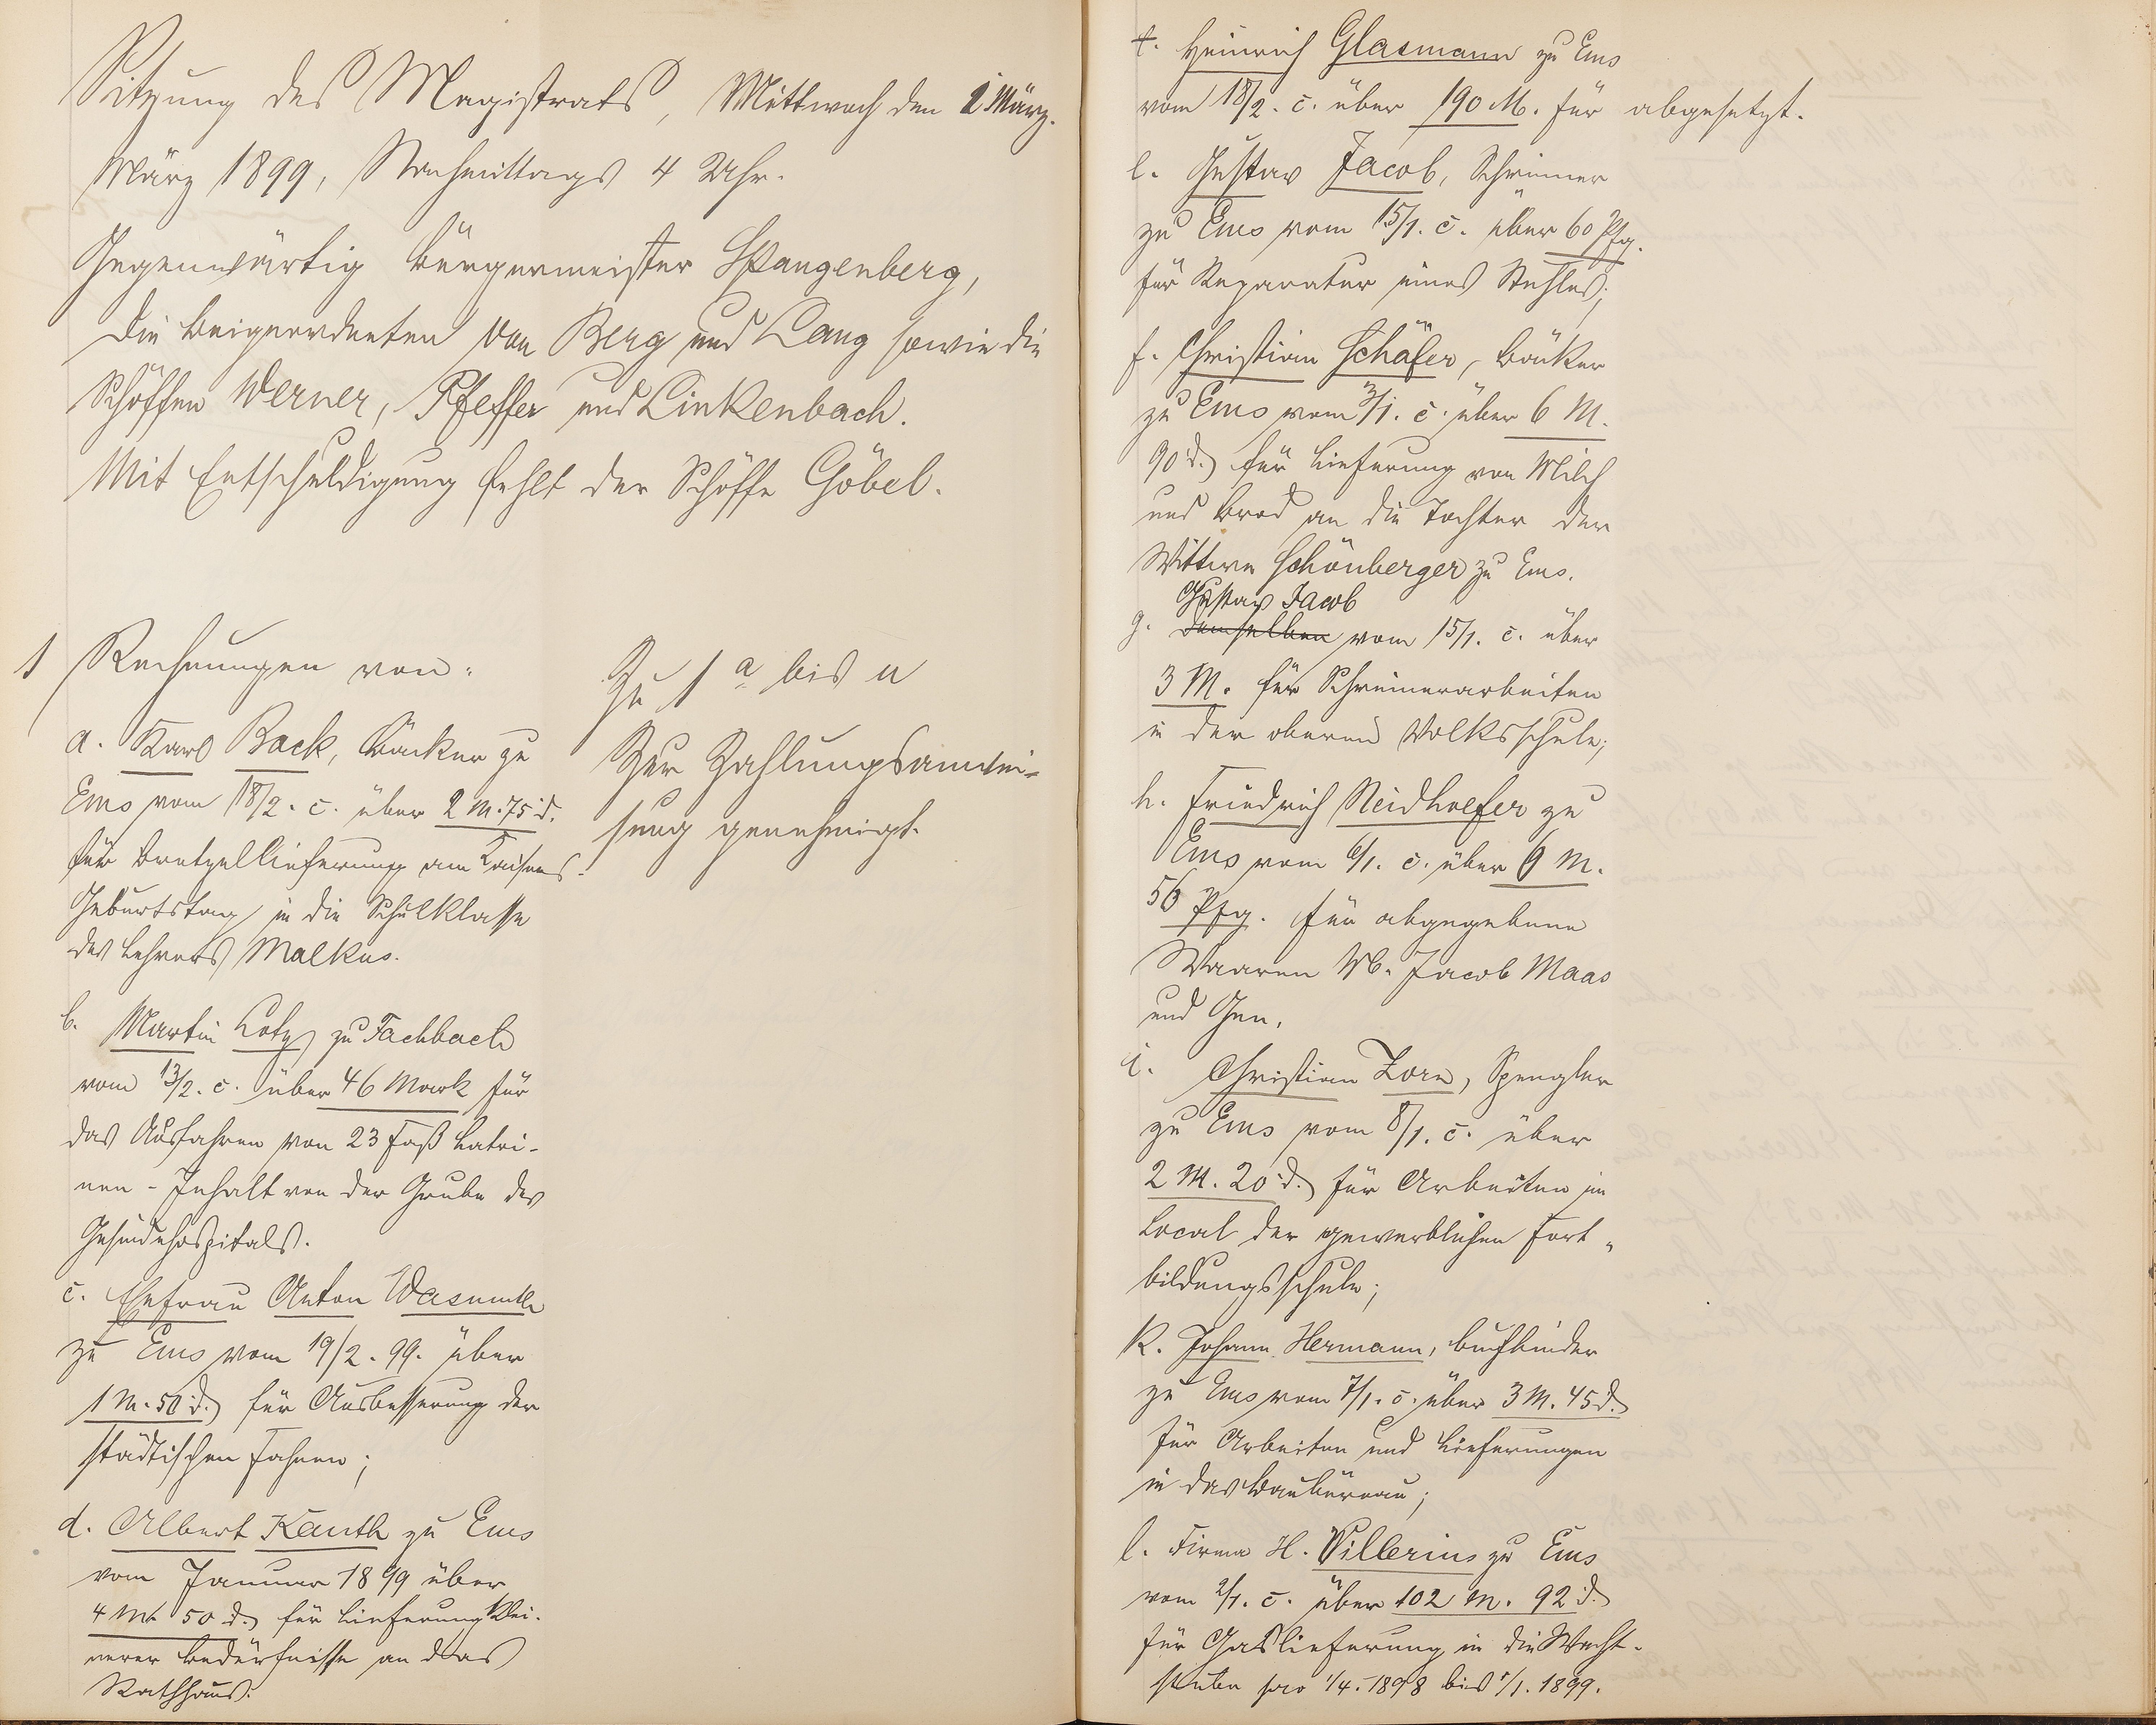 Sitzung des Magistrats, Mittwoch den 1 März.
März 1899, Nachmittags 4 Uhr.
Gegenwärtig Bürgermeister Spangenberg,
die Beigeordneten von Berg und Lang sowie die
Schöffen Werner, Pfeffer und Linkenbach.
Mit Entschuldigung fehlt der Schöffe Göbel.
1 Rechnungen von:
a. Karl Back, Bäcker zu
Ems vom 18/2. c. über 2 M. 75 d.
für Bretzellieferung am Kaisers-
Geburtstag in die Schulklasse
des Lehrers Malkus.
b. Martin Lotz zu Fachbach
vom 13/2. c. über 46 Mark für
das Ausfahren von 23 Faß Latri-
nen-Inhalt von der Grube des
Gesindehospitals.
c. Ehefrau Anton Wasmuth
zu Ems vom 19/2. 99. über
1 M. 50 d. für Ausbesserung der
städtischen Fahnen;
d. Albert Kauth zu Ems
vom Januar 1899 über
4 Mk 50 d. für Lieferung klei-
nerer Bedürfnisse an das
Rathhaus.
Zu 1 a bis u
Zur Zahlungsanwei-
sung genehmigt.
t. Heinrich Glasmann zu Ems
vom 18/2. c. über 190 M. für abgesetzt.
e. Gustav Jacob, Schreiner
zu Ems vom 15/1. c. über 60 Pfg.
für Reparatur eines Stuhles;
f. Christian Schäfer, Bäcker
zu Ems vom 3/1. c. über 6 M.
90 d. für Lieferung von Milch
und Brod an die Tochter der
Wittwe Schönberger zu Ems.
Gustav Jacob
g. demselben vom 15/1. c. über
3 M. für Schreinerarbeiten
in der oberen Volksschule;
h. Friedrich Neidhoefer zu
Ems vom 6/1. c. über 6 M.
56 Pfg. für abgegebene
Waaren Wb. Jacob Maas
und Gen.
i. Christian Zorn, Spengler
zu Ems vom 8/1. c. über
2 M. 20 d. für Arbeiten im
Local der gewerblichen Fort-
bildungsschule;
k. Johann Hermann, Buchbinder
zu Ems vom 7/1. c. über 3 M. 45 d.
für Arbeiten und Lieferungen
in das Baubüreau;
l. Firma H. Villerius zu Ems
vom 2/1. c. über 102 M. 92 d.
für Gaslieferung in die Wacht-
stube pro 1/4. 1898 bis 1/1. 1899.